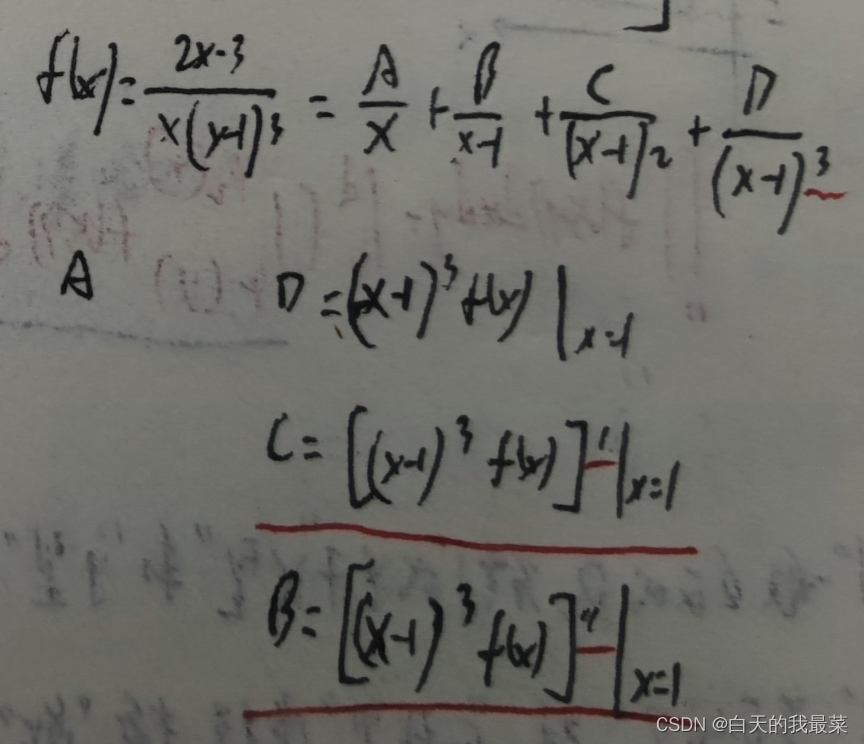 f(x)=\frac{2x-3}{x(x-1)^3}=\frac{A}{x}+\frac{B}{x-1}+\frac{C}{(x-1)^2}+\frac{D}{(x-1)^3}
A D=(x-1)^3 f(x)|_{x=1}
C=[(x-1)^3 f(x)]'|_{x=1}
B=[(x-1)^3 f(x)]''|_{x=1}
CSDN @白天的我最菜